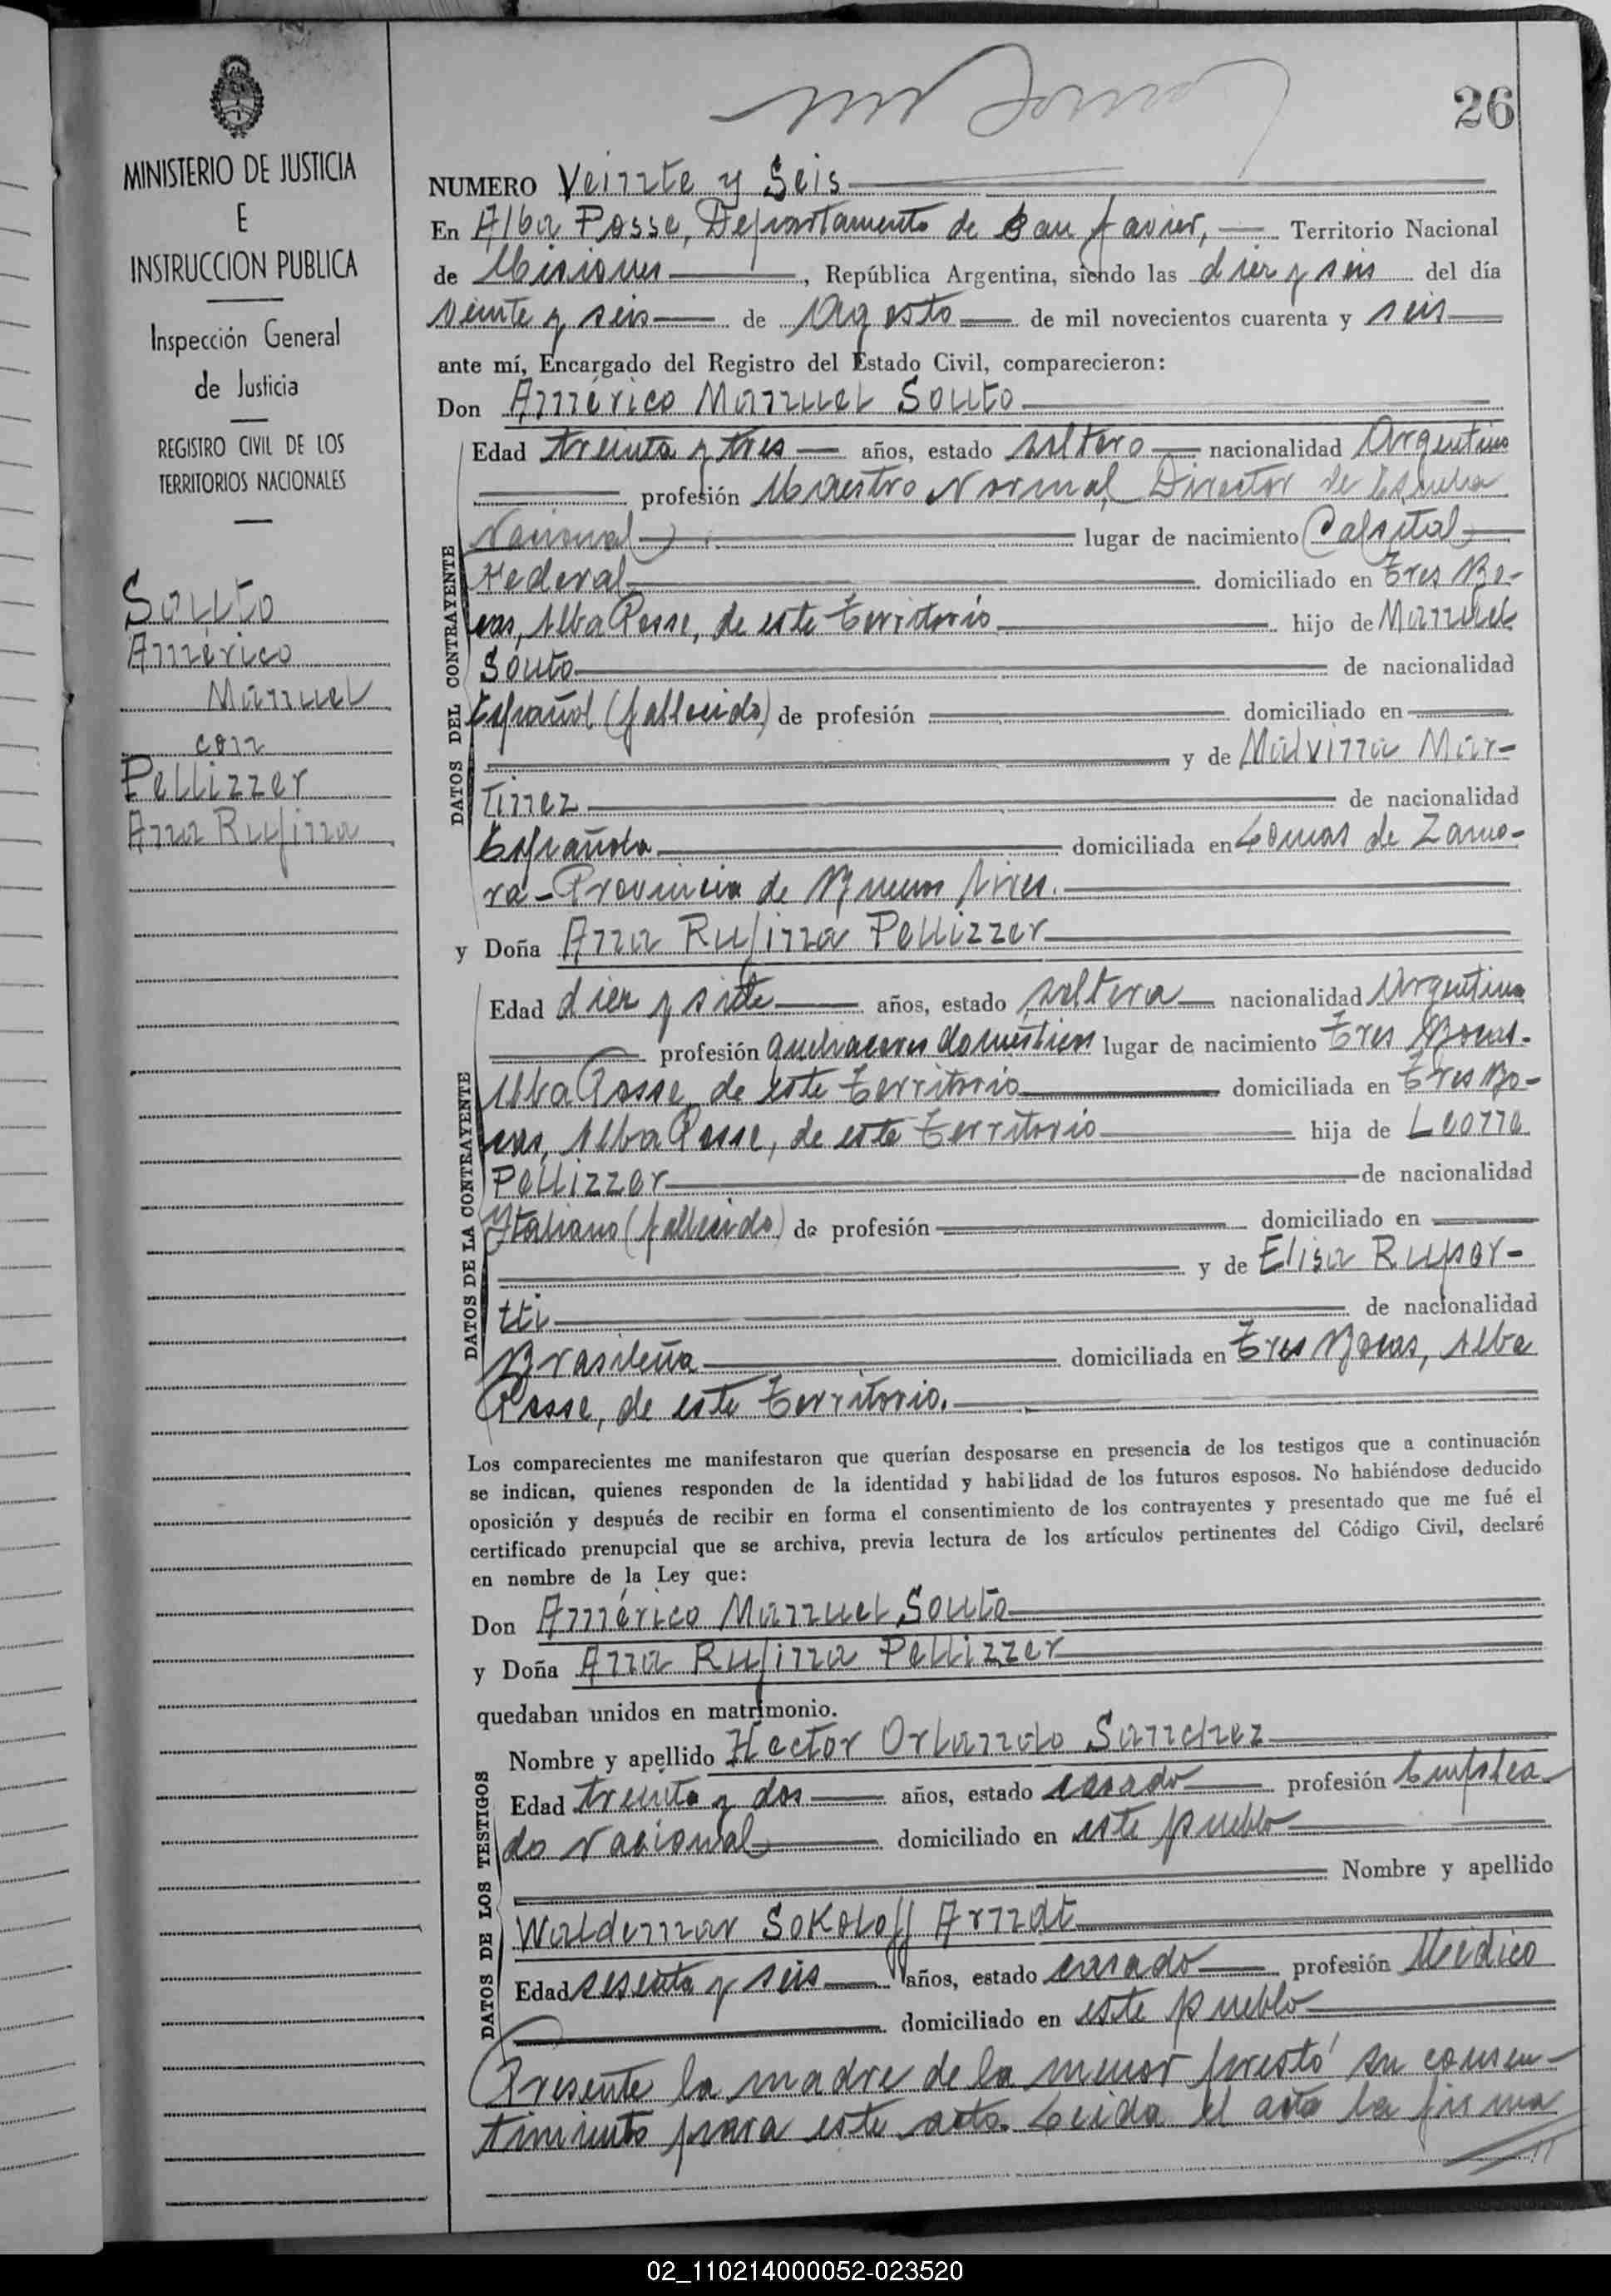 26
MINISTERIO DE JUSTICIA
E
INSTRUCCION PUBLICA
Inspección General
de Justicia
REGISTRO CIVIL DE LOS
TERRITORIOS NACIONALES
Souto
Américo
Manuel
con
Pellizzer
Ana Rufina
NUMERO Veinte y Seis
En Alba Posse, Departamento de San Javier, Territorio Nacional
de Misiones, República Argentina, siendo las diez y seis del día
veinte y seis de Agosto de mil novecientos cuarenta y seis
ante mí, Encargado del Registro del Estado Civil, comparecieron:
Don Américo Manuel Souto
DATOS DEL CONTRAYENTE
Edad treinta y tres años, estado soltero nacionalidad Argentino
profesión Maestro Normal, Director de Escuela
Nacional lugar de nacimiento Capital
Federal domiciliado en Tres Bo-
cas, Alba Posse, de este Territorio hijo de Manuel
Souto de nacionalidad
Español (fallecido) de profesión domiciliado en
y de Malvina Mar-
tinez de nacionalidad
Española domiciliada en Lomas de Zamo-
ra - Provincia de Buenos Aires.
y Doña Ana Rufina Pellizzer
DATOS DE LA CONTRAYENTE
Edad diez y siete años, estado soltera nacionalidad Argentina
profesión quehaceres domésticos lugar de nacimiento Tres Bocas-
Alba Posse, de este Territorio domiciliada en Tres Bo-
cas, Alba Posse, de este Territorio hija de Leone
Pellizzer de nacionalidad
Italiano (fallecido) de profesión domiciliado en
y de Elisa Rupor-
tti de nacionalidad
Brasileña domiciliada en Tres Bocas, Alba
Posse, de este Territorio.
Los comparecientes me manifestaron que querían desposarse en presencia de los testigos que a continuación
se indican, quienes responden de la identidad y habilidad de los futuros esposos. No habiéndose deducido
oposición y después de recibir en forma el consentimiento de los contrayentes y presentado que me fué el
certificado prenupcial que se archiva, previa lectura de los artículos pertinentes del Código Civil, declaré
en nombre de la Ley que:
Don Américo Manuel Souto
y Doña Ana Rufina Pellizzer
quedaban unidos en matrimonio.
DATOS DE LOS TESTIGOS
Nombre y apellido Hector Orlando Sanchez
Edad treinta y dos años, estado casado profesión Emplea-
do Nacional domiciliado en este pueblo
Nombre y apellido
Waldemar Sokoloff Arndt
Edad sesenta y seis años, estado casado profesión Médico
domiciliado en este pueblo
Presente la madre de la menor prestó su consen-
timiento para este acto. Leida el acta la firma
02_110214000052-023520